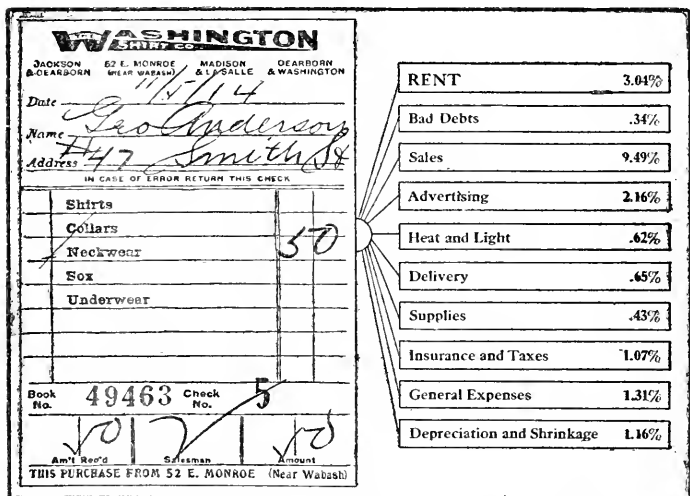 WASHINGTON
SHIRT CO.
JACKSON & DEARBORN 52 E. MONROE (NEAR WABASH) MADISON & LA SALLE DEARBORN & WASHINGTON
Date 11/5/14
Name Geo Anderson
Address #47 Smith St
IN CASE OF ERROR RETURN THIS CHECK
Shirts
Collars
Neckwear 50
Sox
Underwear
Book No. 49463 Check No. 5
50 50
Am't Rec'd Salesman Amount
THIS PURCHASE FROM 52 E. MONROE (Near Wabash)
RENT 3.04%
Bad Debts .34%
Sales 9.49%
Advertising 2.16%
Heat and Light .62%
Delivery .65%
Supplies .43%
Insurance and Taxes 1.07%
General Expenses 1.31%
Depreciation and Shrinkage 1.16%